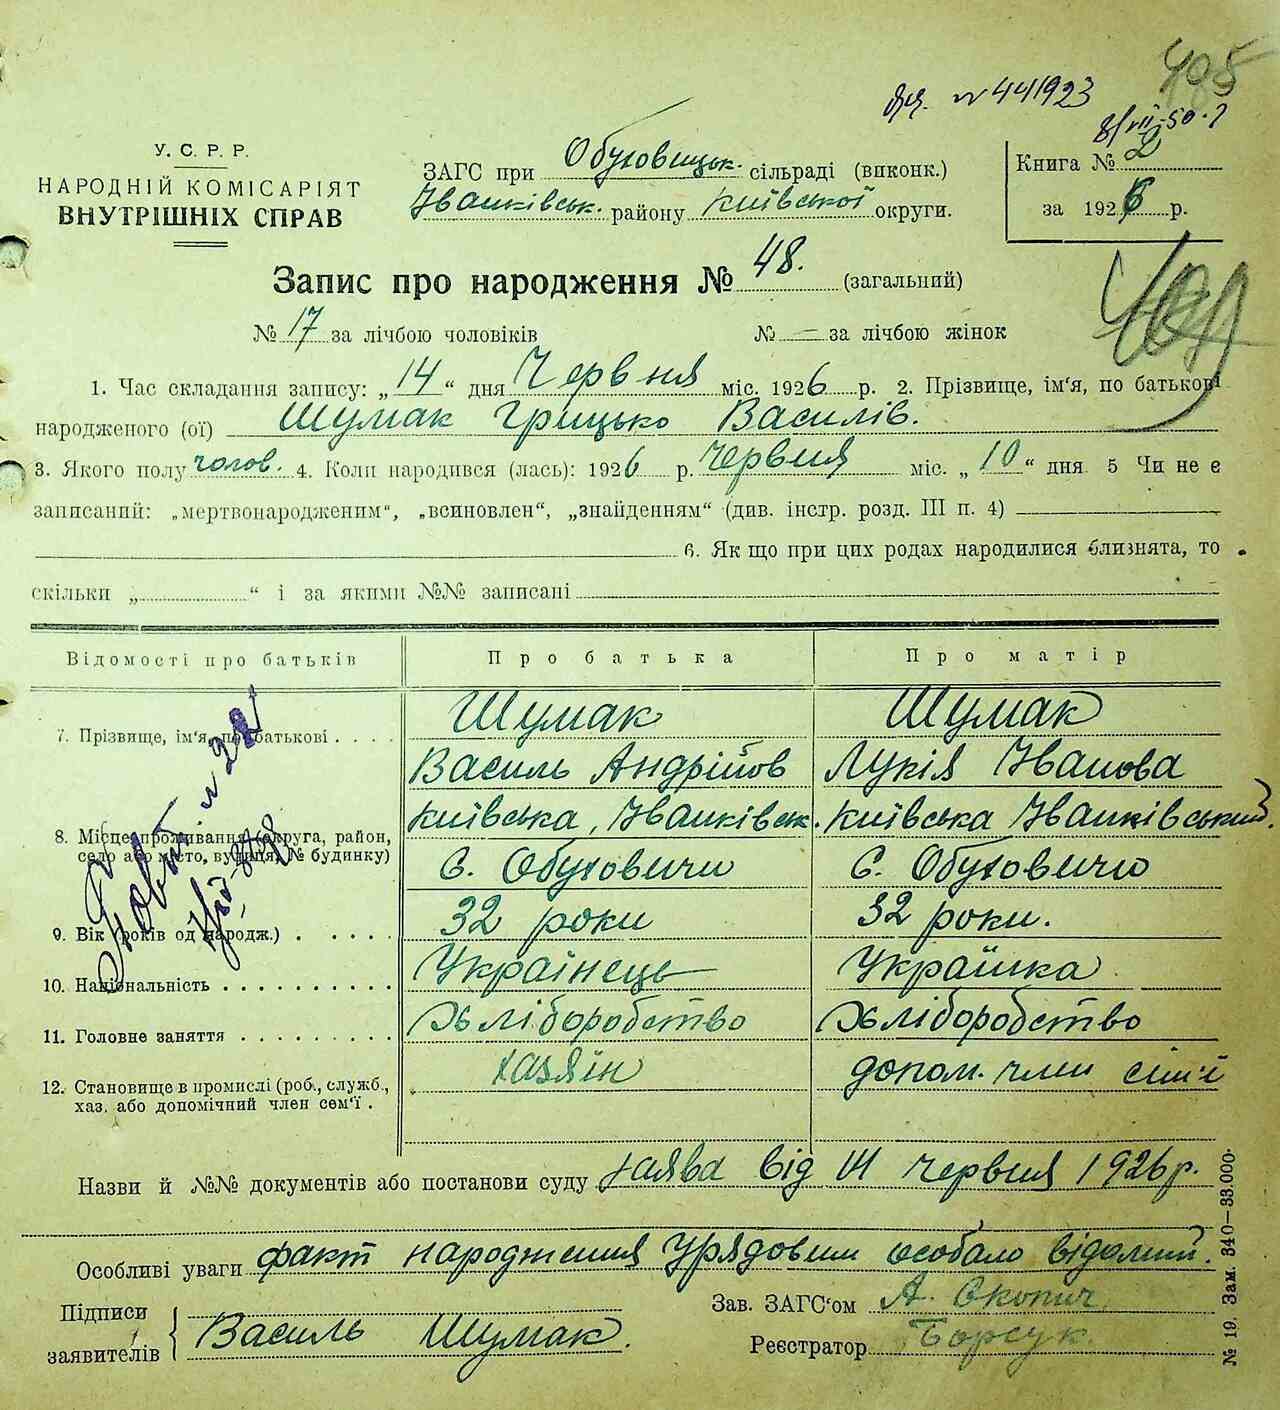 405
№ 441923
8/VII-50 г
У. С. Р. Р.
НАРОДНІЙ КОМІСАРІЯТ
ВНУТРІШНІХ СПРАВ
ЗАГС при Обуховицьк. сільраді (виконк.)
Іванківськ. району Київської округи.
Книга № 2
за 1926 р.
Запис про народження № 48. (загальний)
№ 17 за лічбою чоловіків № — за лічбою жінок
1. Час складання запису: „14“ дня Червня міс. 1926 р. 2. Прізвище, ім'я, по батькові
народженого (ої) Шумак Грицько Василів.
3. Якого полу чолов. 4. Коли народився (лась): 1926 р. Червня міс. „10“ дня. 5 Чи не є
записаний: „мертвонародженим“, „всиновлен“, „знайденням“ (див. інстр. розд. III п. 4)
6. Як що при цих родах народилися близнята, то
скільки „ “ і за якими №№ записані
Відомості про батьків Про батька Про матір
7. Прізвище, ім'я, по батькові . . . . Шумак Шумак
Василь Андрійов Лукія Іванова
8. Місце проживання (округа, район, село або місто, вулиця, № будинку) Київська, Іванківськ. Київська Іванківський.
с. Обуховичи с. Обуховичи
9. Вік (років од народж.) . . . . . 32 роки 32 роки.
10. Національність . . . . . . . . . . Українець Українка
11. Головне заняття . . . . . . . . . Хліборобство Хліборобство
12. Становище в промислі (роб., служб., хаз. або допомічний член сем'ї . хазяїн допом. член сім'ї
Назви й №№ документів або постанови суду Заява від 14 червня 1926 р.
Особливі уваги факт народження урядовим особало відомий.
Підписи
заявителів Василь Шумак.
Зав. ЗАГС'ом А. Скопич
Реєстратор Борсук.
№ 19. Зам. 340—33.000.